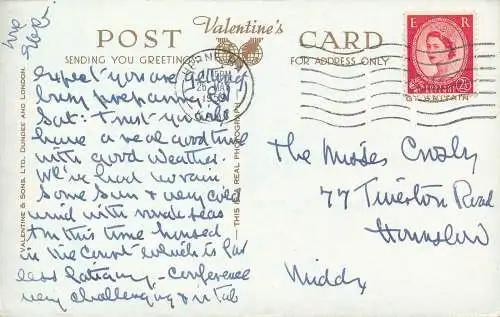 POST Valentine's CARD
SENDING YOU GREETINGS FOR ADDRESS ONLY
E R
2½D
expect you are getting
busy preparing for
Sat: trust you will
have a real good time
with good weather.
We've had no rain
some sun & very cold
wind with rough seas
I'm this time housed
in the Court which is far
less fatiguing - Conference
very challenging &
The Misses Crosby
77 Tiverton Road
Hounslow
Middx
VALENTINE & SONS LTD. DUNDEE AND LONDON.
THIS IS A REAL PHOTOGRAPH